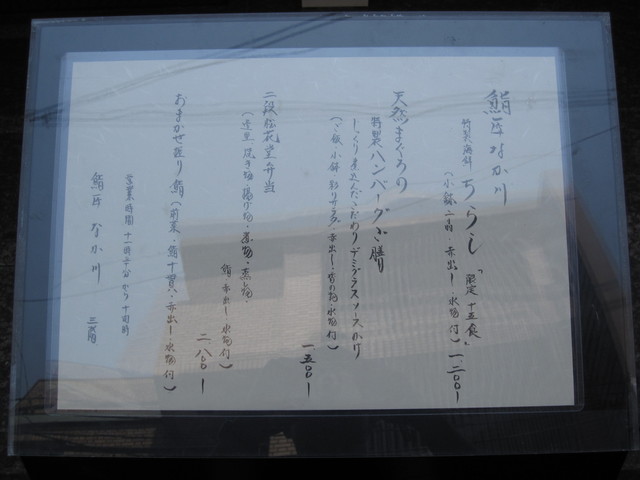 鮨匠なか川
特製海鮮 ちらし 「限定 十五食」
(小鉢二品 赤出し・水物付) 一、二〇〇ー
天然まぐろの
特製ハンバーグ御膳
じっくり煮込んだこだわりデミグラスソースかけ
(ご飯 小鉢 彩りサラダ・赤出し・香の物・水物付)
一、五〇〇ー
二段松花堂弁当
(造里・焼き物・揚げ物・煮物・蒸し物・
鮨・赤出し・水物付)
二、八〇〇ー
おまかせ匠り鮨(前菜・鮨十貫・赤出し・水物付)
営業時間 十一時三十分から十四時
鮨匠 なか川